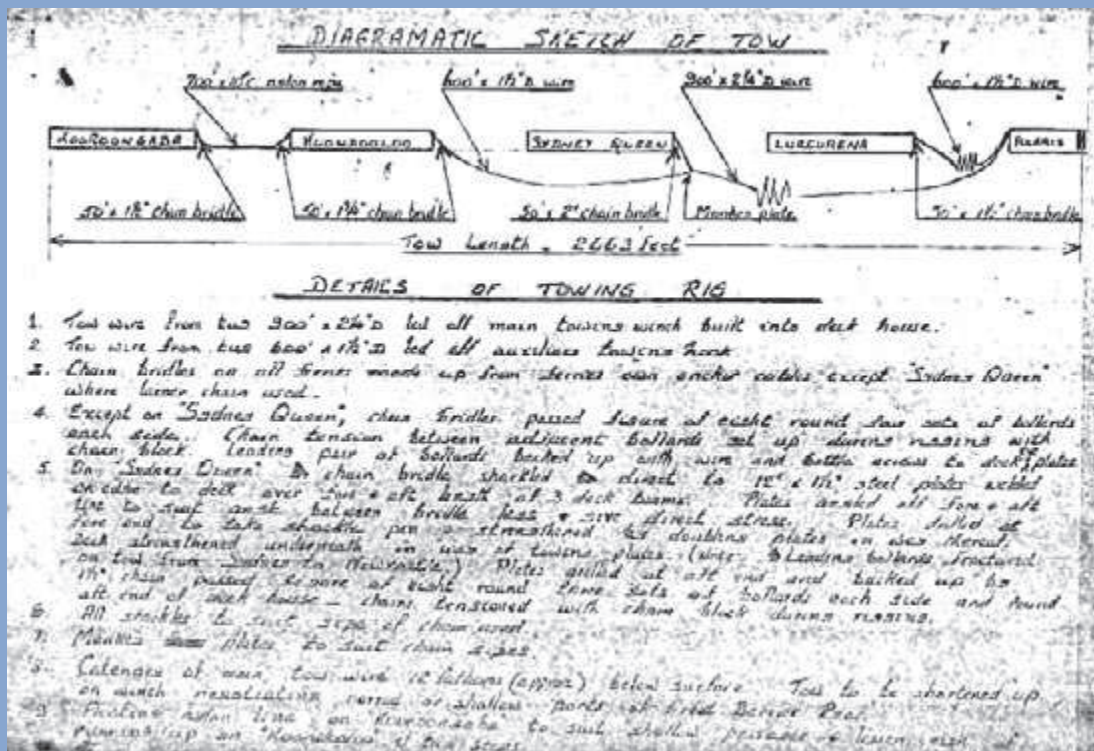 DIAGRAMATIC SKETCH OF TOW
nylon rope 600' x 1½" D wire 900' x 2¼" D wire 600' x 1½" D wire
KOOROONGABA KOONDOOLOO SYDNEY QUEEN LURGURENA
50' x chain bridle 50' x 1¾" chain bridle 50' x 2" chain bridle Monkey plate 50' x 1½" chain bridle
Tow Length - 2663 feet
DETAILS OF TOWING RIG
1. Tow wire from tug 900' x 2¼" D led off main towing winch built into deck house.
2. Tow wire from tug 600' x 1½" D led off auxiliary towing hook
3. Chain bridles on all ferries made up from ferries own anchor cables except "Sydney Queen"
where larger chain used.
4. Except on "Sydney Queen", chain bridles passed figure of eight round four sets of bollards
each side. Chain tension between adjacent bollards set up during rigging with
chain block. Leading pair of bollards backed up with wire and bottle screws to deck plates
5. On "Sydney Queen" chain bridle shackled direct to 12" x 1½" steel plates welded
on edge to deck over fore & aft length of 3 deck beams. Plates angled off fore & aft
line to suit angle between bridle legs & give direct stress. Plates drilled at
fore end to take shackle pin & strengthened by doubling plates in way thereof.
Deck strengthened underneath in way of towing plates. leading bollards fractured
on tow from Sydney to Newcastle) Plates drilled at aft end and backed up by
1½" chain passed figure of eight round three sets of bollards each side and round
aft end of deck house - chains tensioned with chain block during rigging.
6. All shackles to suit size of chain used.
7. plates to suit chain sizes.
8. Catenary of main tow wire 12 fathoms (approx) below surface. Tow to be shortened up
on winch negotiating narrow or shallow parts of Great Barrier Reef.
9. nylon line on "Kooroongaba" to suit shallow